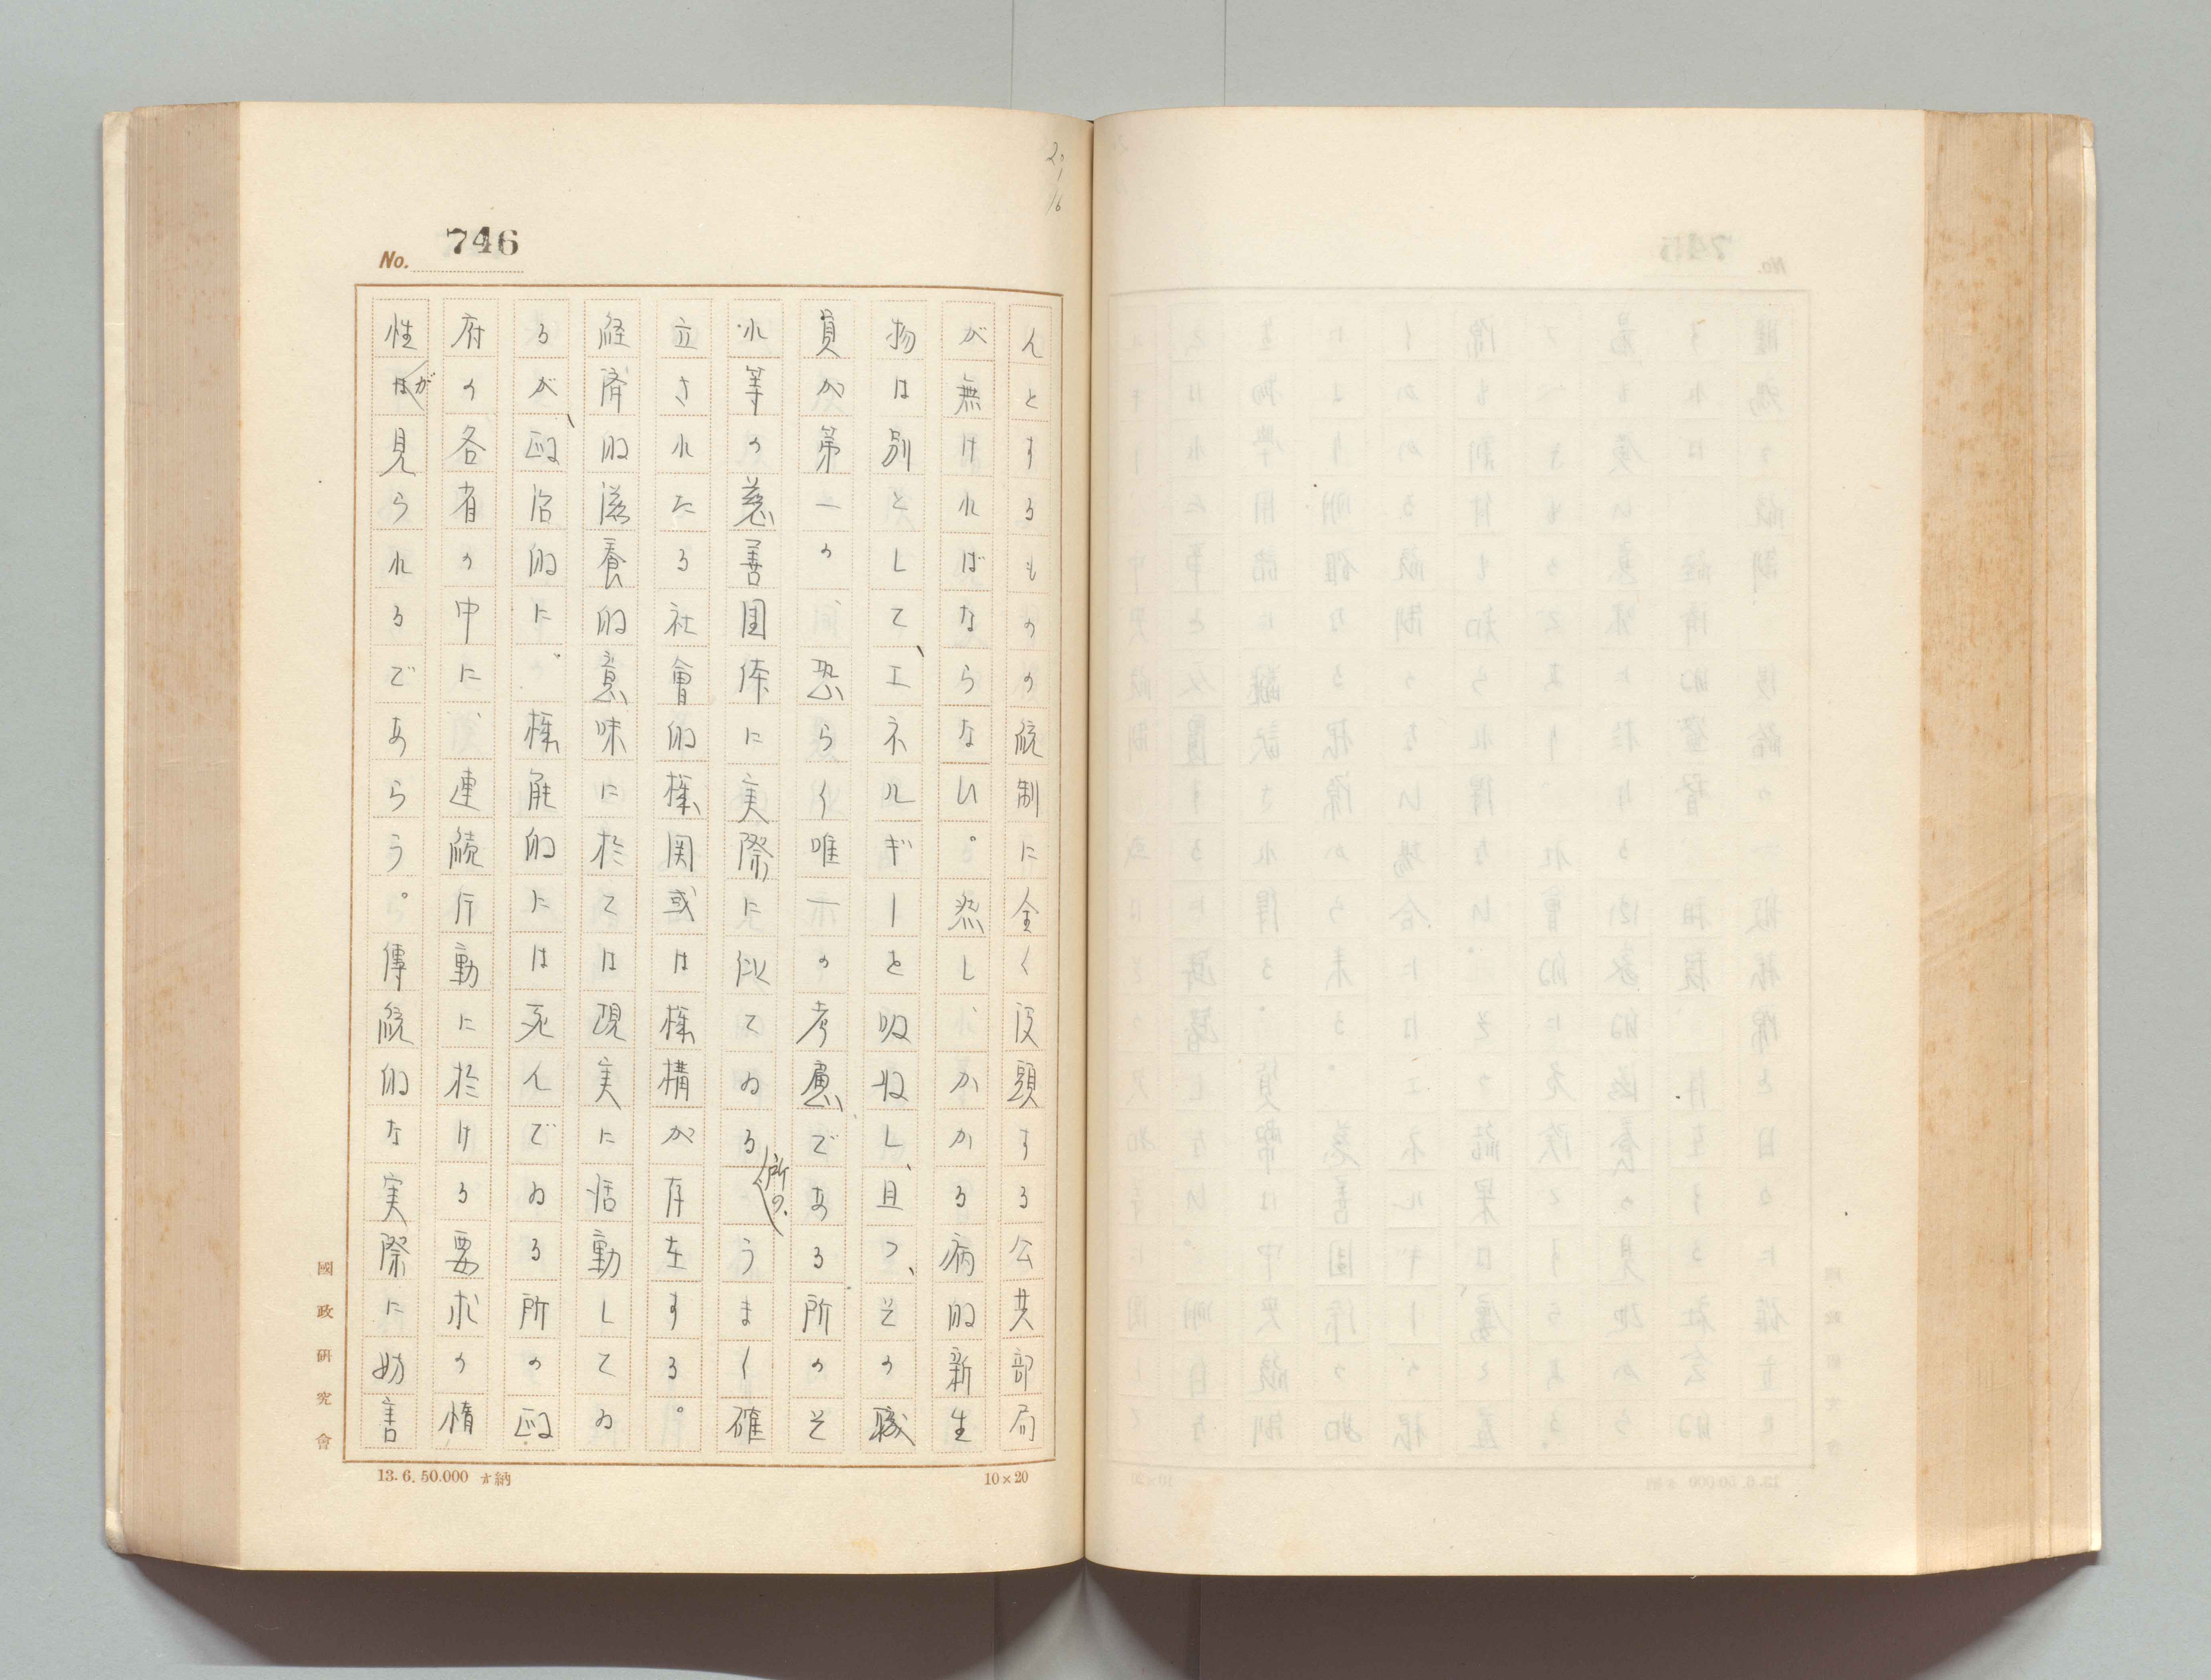 20/1/6
No. 746
んとするものの統制に全く没頭する公共部局
が無ければならない。然し、かかる病的新生
物は別として、エネルギーを吸收し、且つ、その職
員が第一の、恐らく唯一の考慮である所のそ
れ等の慈善団体に実際に似てゐる所の、うまく確
立された社會的機関或は機構が存在する。
経済的滋養的意味に於ては現実に活動してゐ
るが、政治的に。機能的には死んでゐる所の政
府の各省の中に、連続行動に於ける要求の惰
性が見られるであらう。傳統的な実際に妨害
國政研究會
13. 6. 50.000 納
10×20